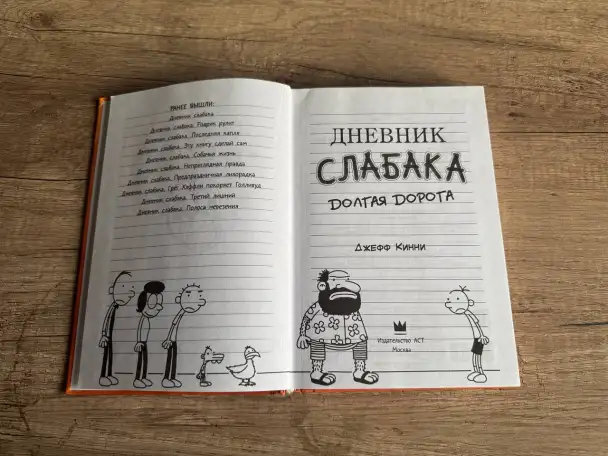 РАНЕЕ ВЫШЛИ:
Дневник слабака
Дневник слабака. Родрик рулит
Дневник слабака. Последняя капля
Дневник слабака. Эту книгу сделай сам
Дневник слабака. Собачья жизнь
Дневник слабака. Неприглядная правда
Дневник слабака. Предпраздничная лихорадка
Дневник слабака. Грег Хэффли покоряет Голливуд
Дневник слабака. Третий лишний
Дневник слабака. Полоса невезения
ДНЕВНИК
СЛАБАКА
ДОЛГАЯ ДОРОГА
ДЖЕФФ КИННИ
Издательство АСТ
Москва